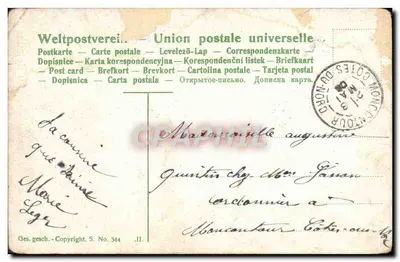 Weltpostverein — Union postale universelle
Postkarte - Carte postale - Levelező-Lap - Correspondenzkarte
Dopisnice - Karta korespondencyjna - Korespondenční lístek - Briefkaart
- Post card - Brefkort - Brevkort - Cartolina postale - Tarjeta postal
- Dopisnica - Carta postala - Открытое-письмо. Дописна карта.
MONCONTOUR COTES-DU-NORD
21 MAI
CPAPHIL.com
La cousine
que t'aime
Marie
Leger
Mademoiselle augustine
Quintin chez Mr
cordonnier à
Moncontour Côtes-du-Nor
Ges. gesch. - Copyright. S. No. 344 .II.